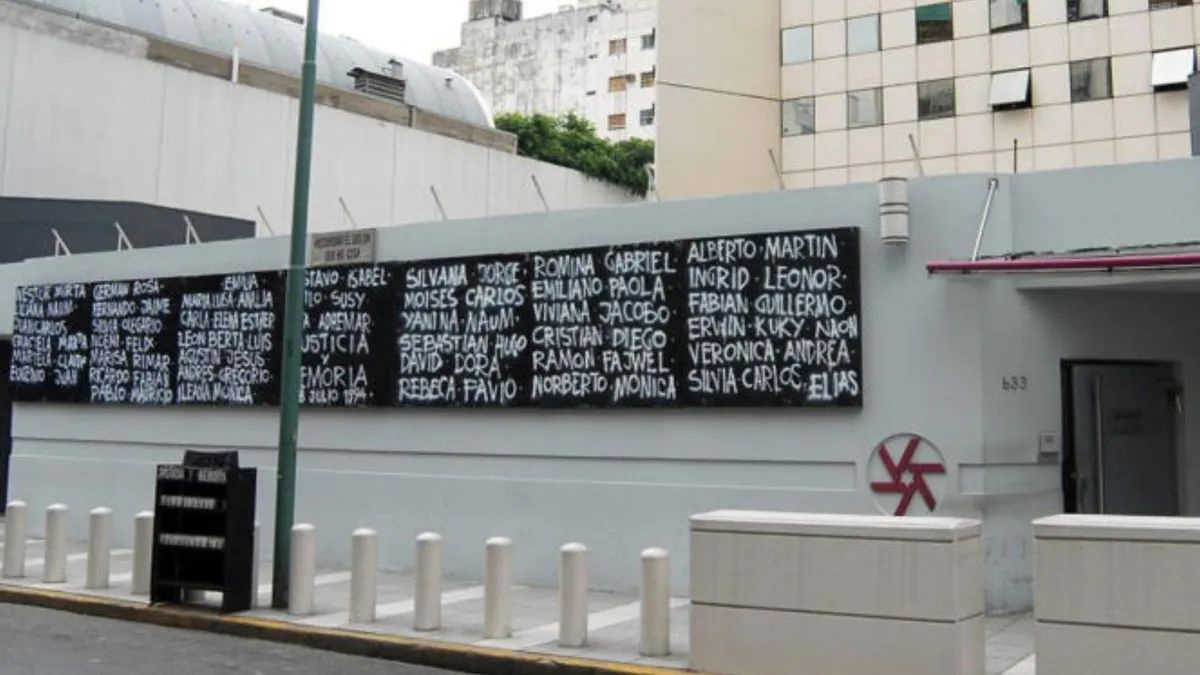 RECORDAR EL DOLOR
QUE NO CESA
NESTOR MIRTA
NAUM
JUAN CARLOS
GRACIELA
MARIELA
EUGENIO JUAN
GERMAN ROSA
FERNANDO JAIME
SILVIA GREGORIO
NOEMI FELIX
MARISA RIMAR
RICARDO FABIAN
PABLO MAURICIO
EMILIA
MARIA LUISA ANALIA
CARLA ELENA ESTHER
LEON BERTA LUIS
AGUSTIN JESUS
ANDRES GREGORIO
ILEANA MONICA
STAVO ISABEL
TO SUSY
ADREMAR
USTICIA
Y
EMORIA
8 JULIO 1994
SILVANA JORGE
MOISES CARLOS
YANINA NAUM
SEBASTIAN HUGO
DAVID DORA
REBECA FAVIO
ROMINA GABRIEL
EMILIANO PAOLA
VIVIANA JACOBO
CRISTIAN DIEGO
RAMON FAJWEL
NORBERTO MONICA
ALBERTO MARTIN
INGRID LEONOR
FABIAN GUILLERMO
ERWIN KUKY NAON
VERONICA ANDREA
SILVIA CARLOS ELIAS
633
JUSTICIA Y MEMORIA